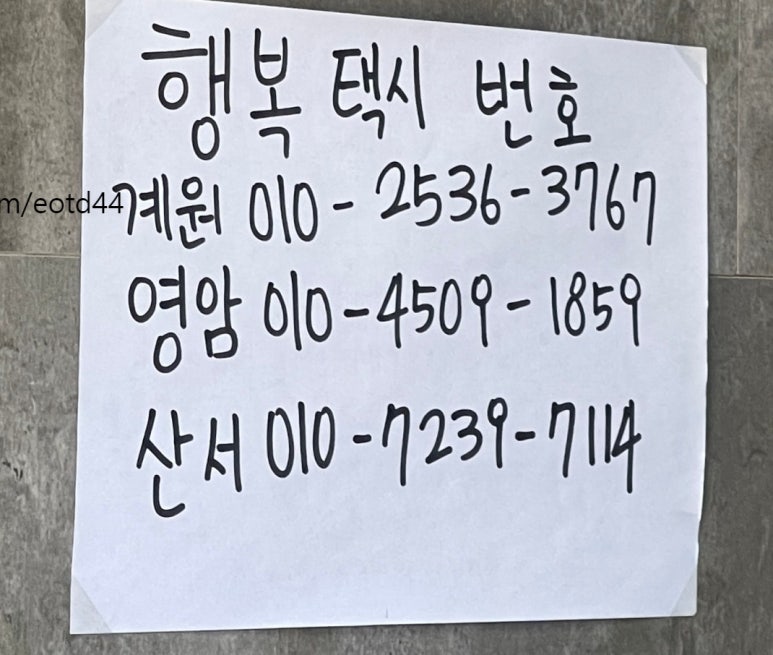 행복 택시 번호
m/eotd44
계원 010-2536-3767
영암 010-4509-1859
산서 010-7239-7114